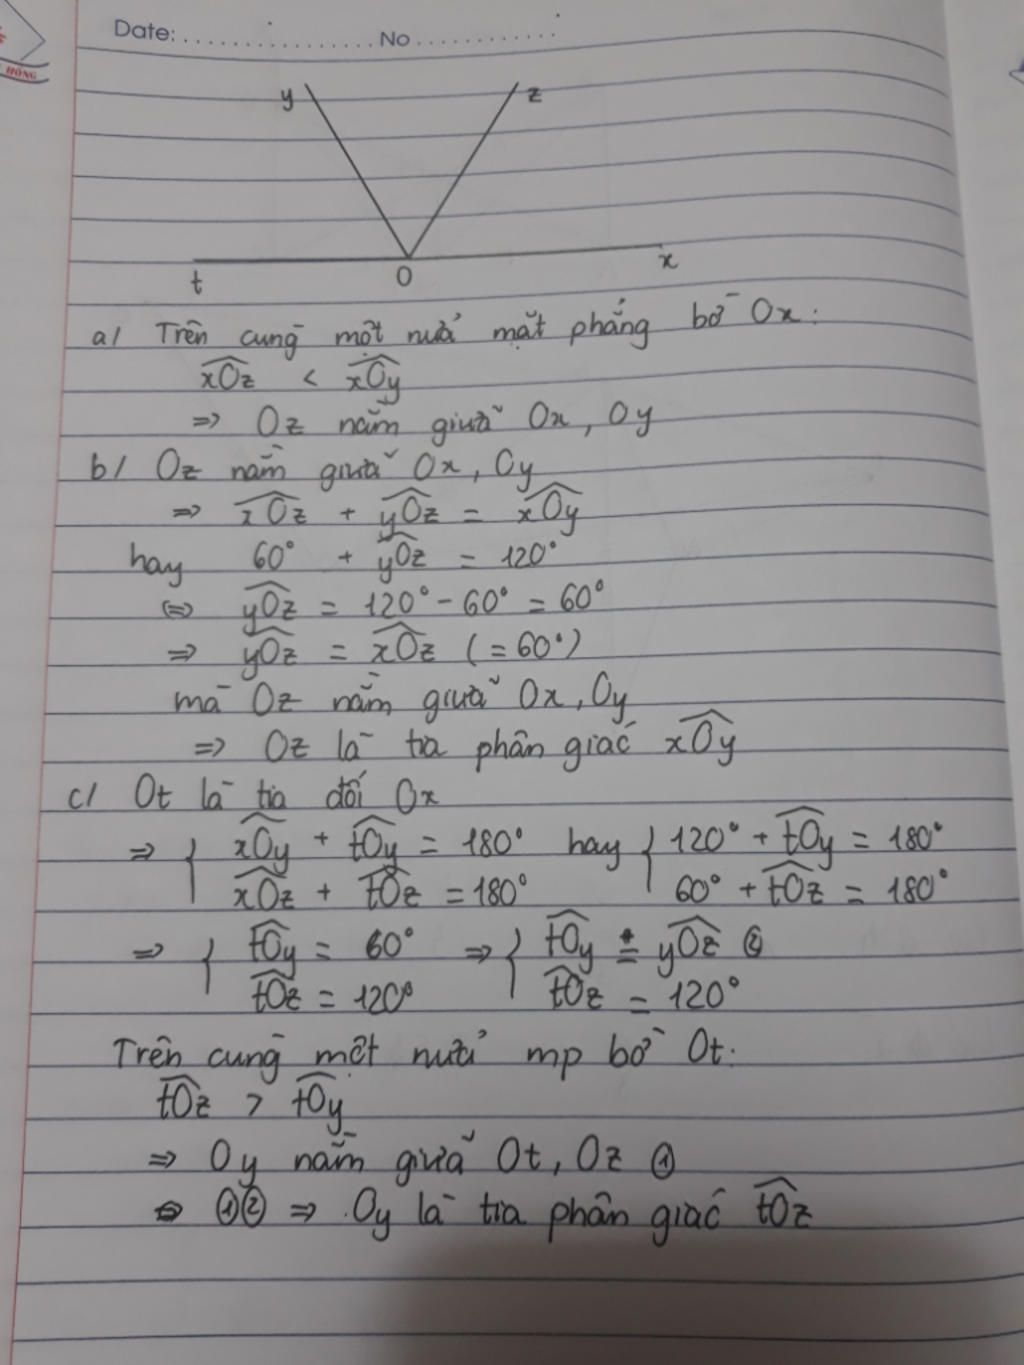 HỒNG
Date: ................. No .............
y z
t O x
a/ Trên cùng một nửa mặt phẳng bờ Ox:
xÔz < xÔy
⇒ Oz nằm giữa Ox, Oy
b/ Oz nằm giữa Ox, Oy
⇒ xÔz + yÔz = xÔy
hay 60° + yÔz = 120°
⇔ yÔz = 120° - 60° = 60°
⇒ yÔz = xÔz (= 60°)
mà Oz nằm giữa Ox, Oy
⇒ Oz là tia phân giác xÔy
c/ Ot là tia đối Ox
⇒ { xÔy + tÔy = 180° hay { 120° + tÔy = 180°
xÔz + tÔz = 180° 60° + tÔz = 180°
⇒ { tÔy = 60° ⇒ { tÔy = yÔz ②
tÔz = 120° tÔz = 120°
Trên cùng một nửa mp bờ Ot:
tÔz > tÔy
⇒ Oy nằm giữa Ot, Oz ①
①② ⇒ Oy là tia phân giác tÔz